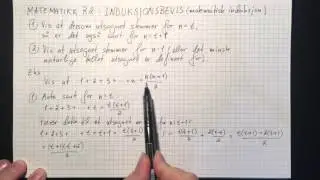 MATEMATIKK R2: INDUKSJONSBEVIS (matematisk induksjon)
(1) Vis at dersom utsagnet stemmer for n=t,
så er det også sant for n=t+1
(2) Vis at utsagnet stemmer for n=1 (eller det minste
naturlige tallet utsagnet er definert for).
Eks:
Vis at 1+2+3+⋯+n = n(n+1)/2
(1) Anta sant for n=t.
1+2+3+⋯+t = t(t+1)/2
utsagnet er sant for n=t+1:
1+2+3+⋯+t+(t+1) = t(t+1)/2 + (t+1) = t(t+1)/2 + 2(t+1)/2 = t(t+1)+2(t+1)/2
= (t+1)(t+2)/2